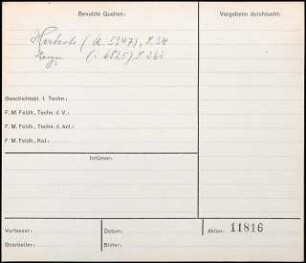 Benutzte Quellen:
Vergebens durchsucht:
(A. 5347), S. 34
Geschichtsbl. f. Techn.:
F. M. Feldh., Techn. d. V.:
F. M. Feldh., Techn. d. Ant.:
F. M. Feldh., Kal.:
Irrtümer:
Verfasser:
Datum:
Akten: 11816
Bearbeiter:
Bilder: